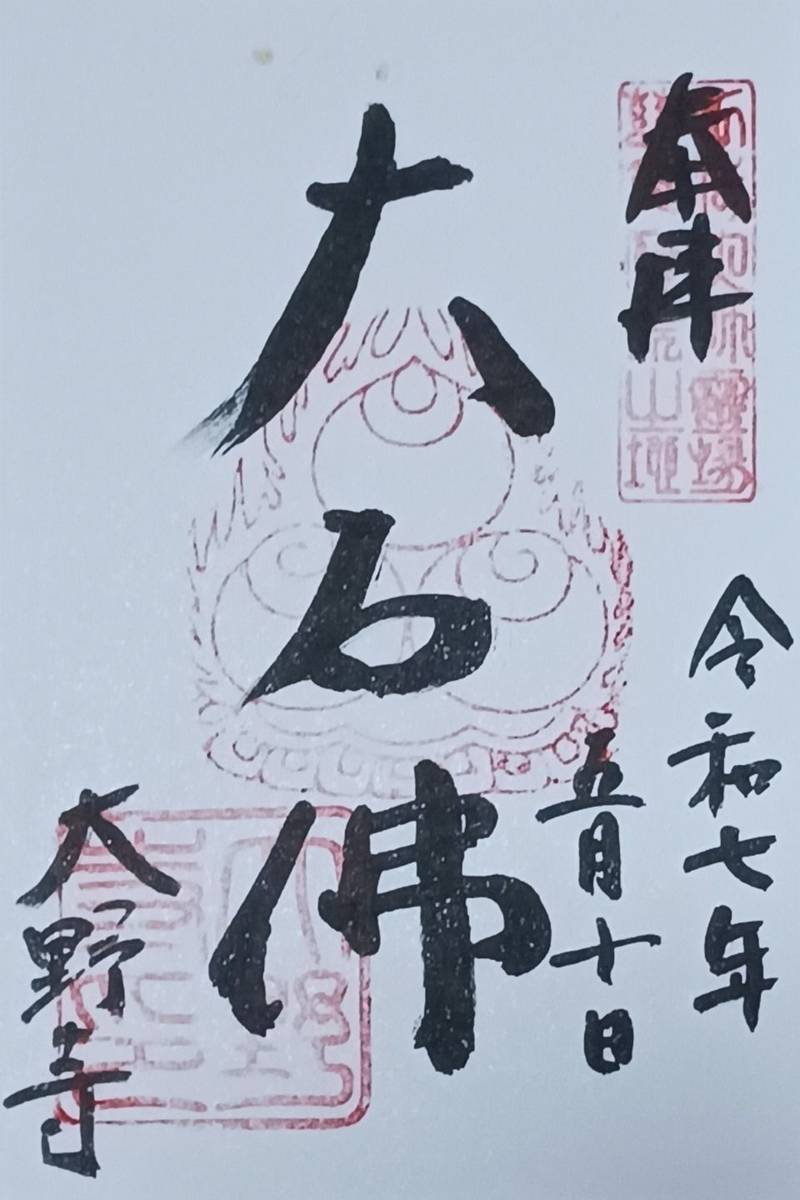 奉拝
靈場
令和七年
五月十日
大石佛
大野寺